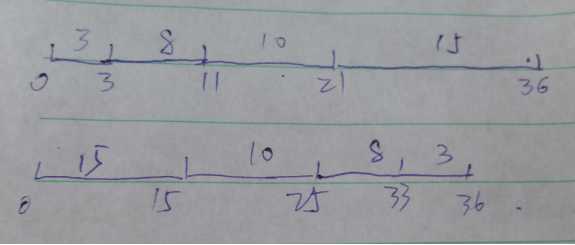 3 8 10 15
0 3 11 21 36
15 10 8 3
0 15 25 33 36